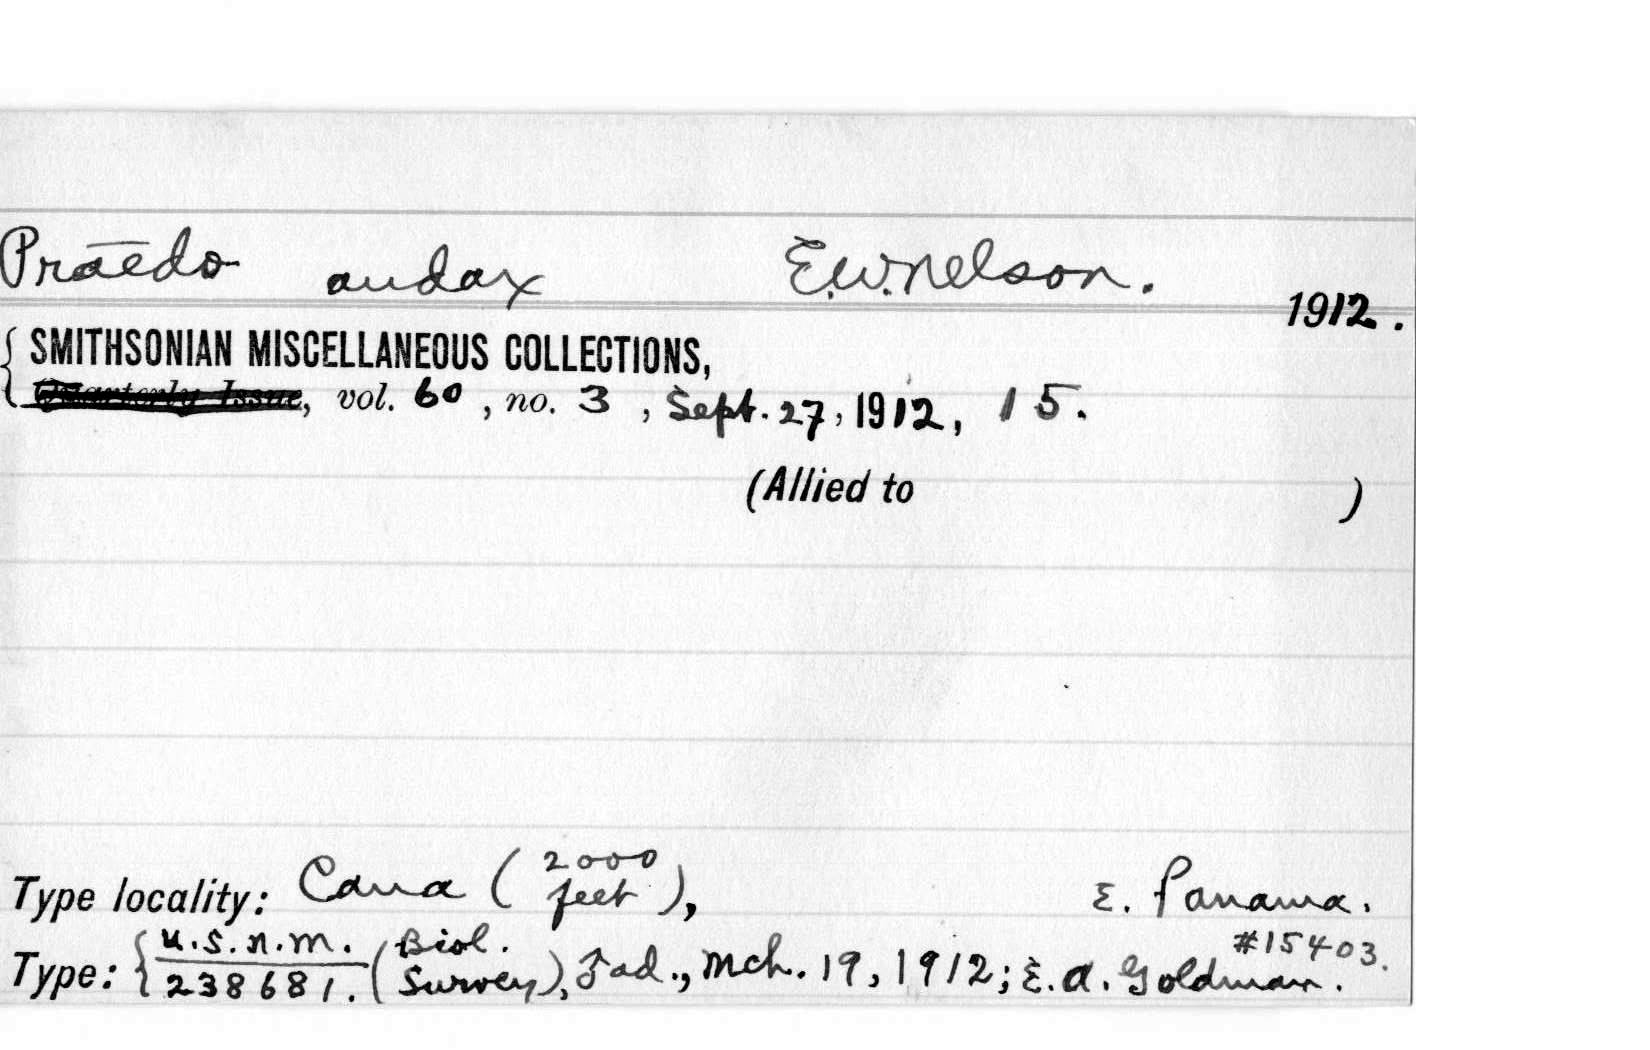 Praedo audax E.W. Nelson.
1912.
SMITHSONIAN MISCELLANEOUS COLLECTIONS,
Quarterly Issue, vol. 60, no. 3, Sept. 27, 1912, 15.
(Allied to )
Type locality: Cana (2000 feet), E. Panama.
#15403.
Type: {U.S.N.M. 238681. (Biol. Survey), ♂ ad., Mch. 19, 1912; E.A. Goldman.